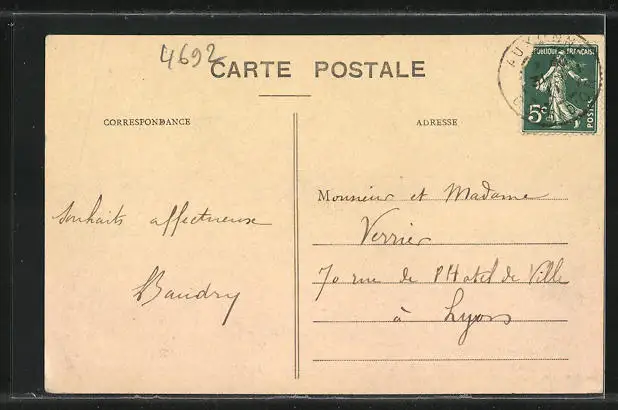 4692
CARTE POSTALE
CORRESPONDANCE
ADRESSE
RÉPUBLIQUE FRANÇAISE
5c
POSTES
AUXONNE
souhaits affectueuse
Baudry
Monsieur et Madame
Verrier
70 rue de l'Hotel de Ville
à Lyon